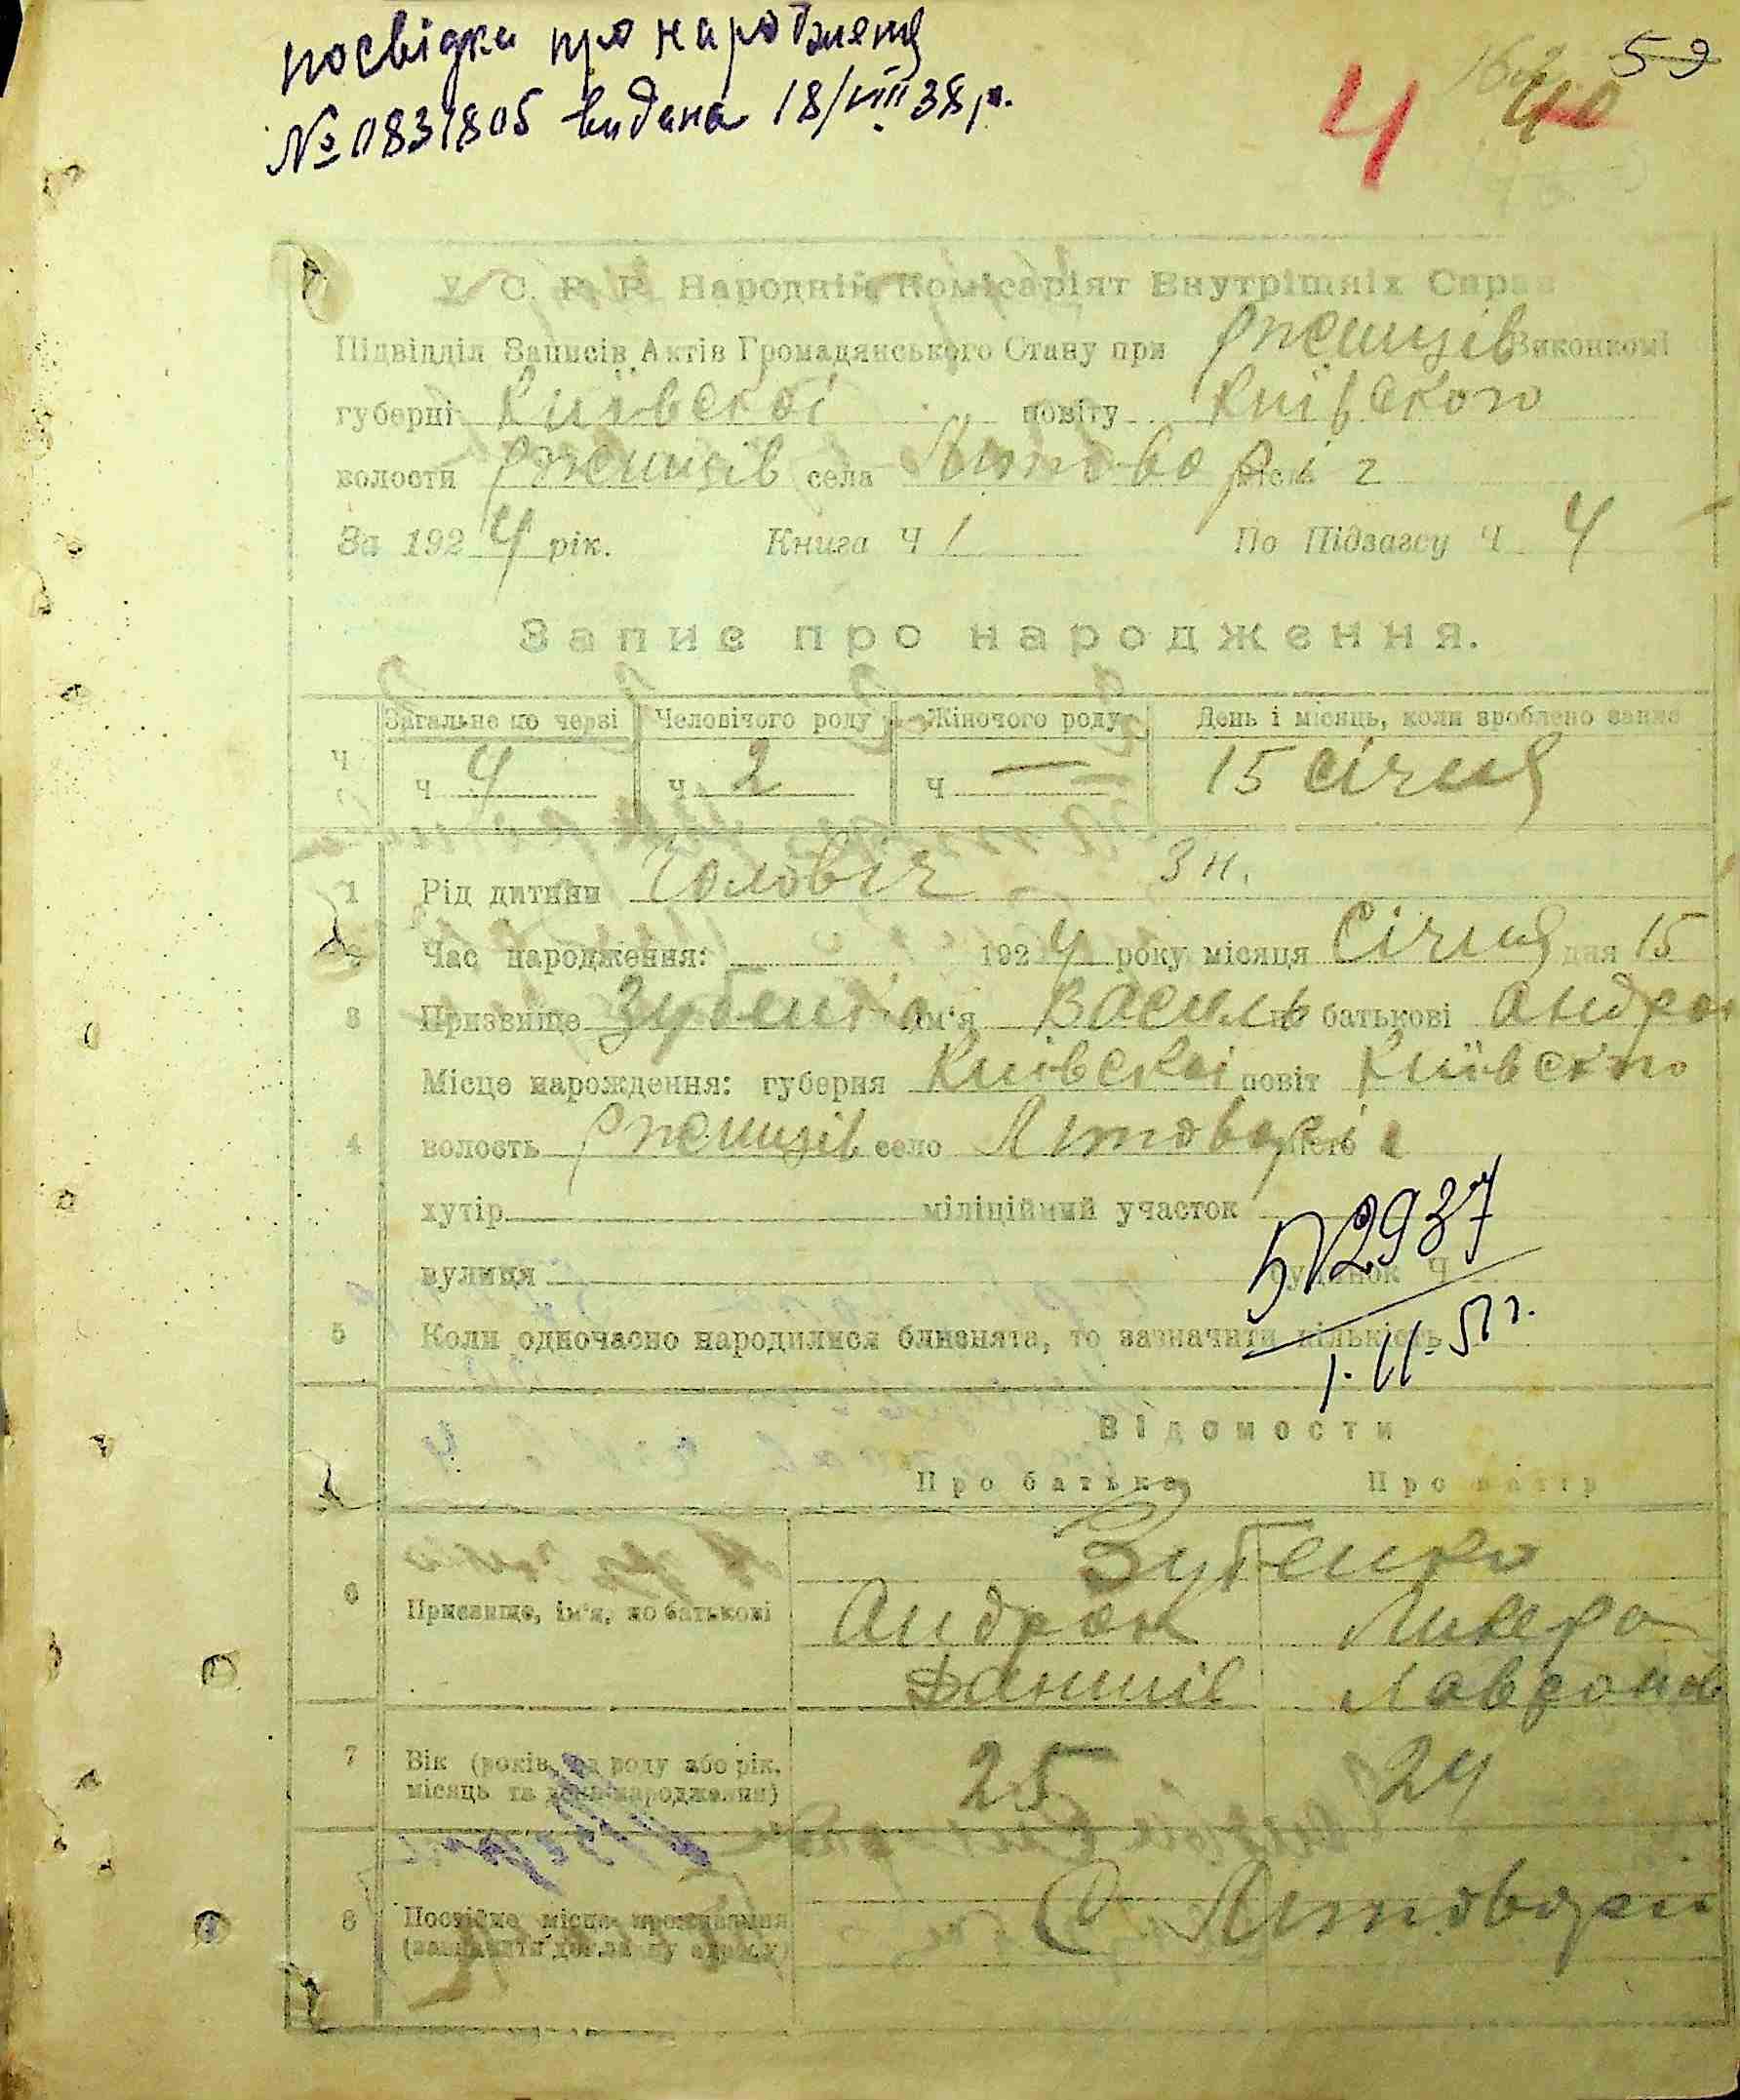 посвідка про народження
№ 0831805 видана 18/VIII 38 р.
59
4 40
У. С. Р. Р. Народній Комісаріят Внутрішніх Справ
Підвідділ Записів Актів Громадянського Стану при Ржищів Виконкомі
губерні Київскої повіту Київского
волости Ржищів села місто
За 1924 рік. Книга Ч 1 По Підзагсу Ч 4
Запис про народження.
Загальне по черзі Человічого роду Жіночого роду День і місяць, коли зроблено запис
Ч Ч 4 Ч 2 Ч — 15 січня
1 Рід дитини Чоловіч Зн.
2 Час народження: 1924 року місяця Січня дня 15
3 Призвище Зубенко Ім'я Василь по батькові Андрон
Місце нарождення: губерня Київскої повіт Київского
4 волость Ржищів село місто
хутір міліційний участок
вулиця будинок Ч
5 Коли одночасно народилися близнята, то зазначити кількість
2937
1.II.51 г.
Відомости
Про батька Про матір
Зубенко
6 Призвище, ім'я, по батькові Андрон Ликера
Данилів
7 Вік (років, від роду або рік, місяць та день народження) 25 24
8 Постійне місце проживання С.